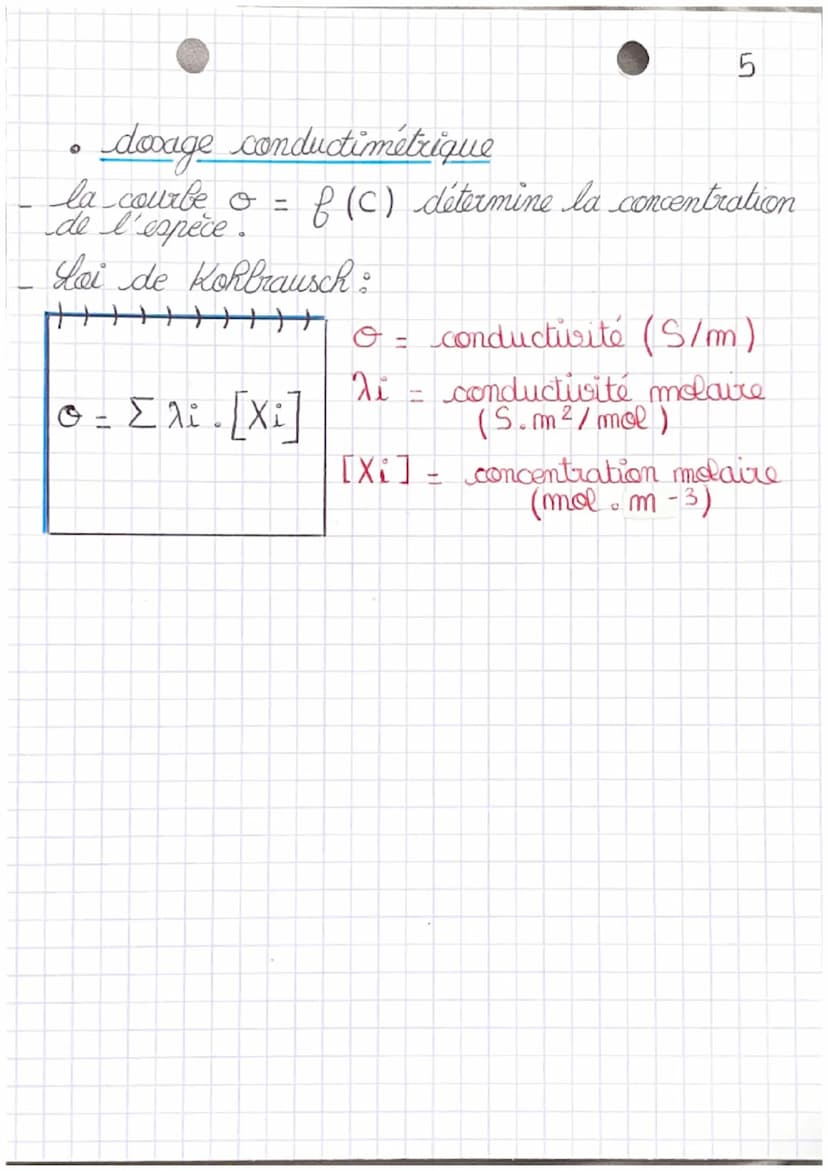 5
• dosage conductimétrique
- la courbe σ = f (C) détermine la concentration
de l'espèce.
- Loi de Kohlrausch :
σ = Σ λi . [Xi]
σ = conductivité (S/m)
λi = conductivité molaire
(S.m²/mol)
[Xi] = concentration molaire
(mol . m -3)